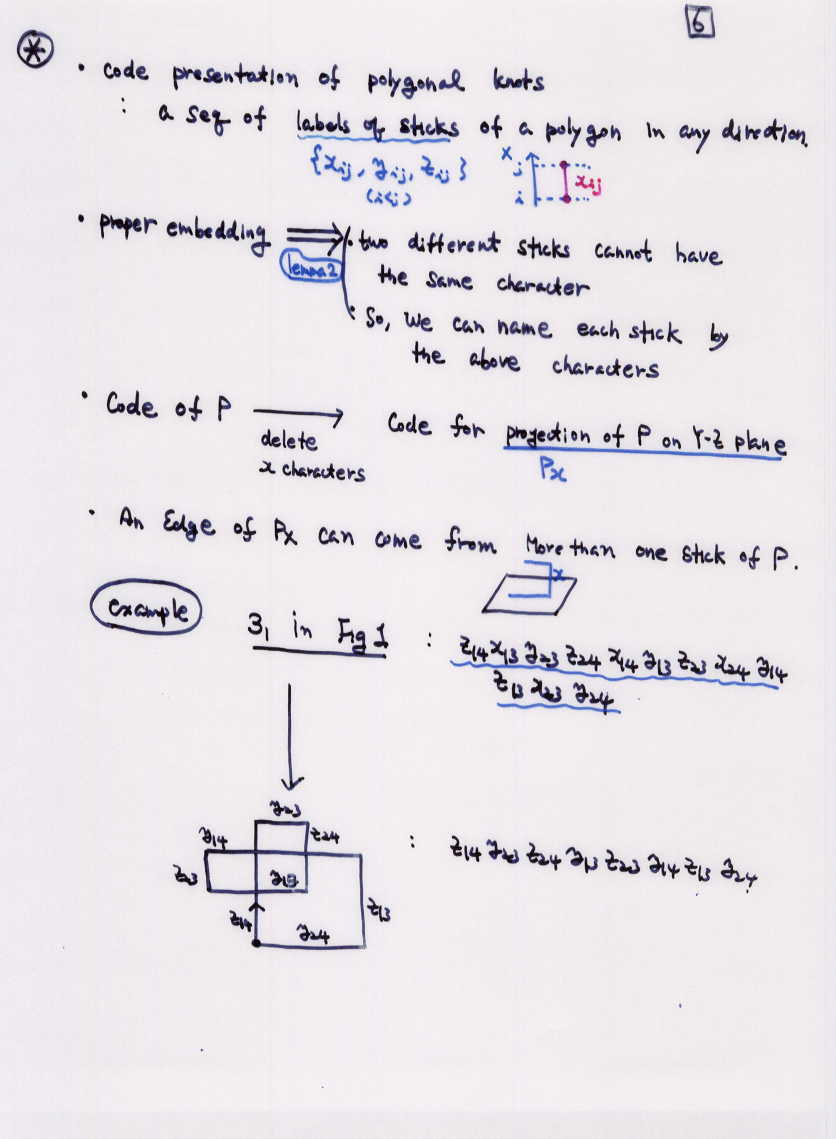 6
* • code presentation of polygonal knots
: a seq of labels of sticks of a polygon in any direction.
{x_ij, y_ij, z_ij} x j i x_ij
(i<j)
• proper embedding ⟹ • two different sticks cannot have
lemma 2 the same character
• So, we can name each stick by
the above characters
• Code of P ⟶ Code for projection of P on Y-Z plane
delete P_x
x characters
• An Edge of P_x can come from More than one stick of P.
x
example 3_1 in Fig 1 : z_14 x_13 y_23 z_24 x_14 y_13 z_23 x_24 y_14
z_13 x_23 y_24
y_23
y_14 z_24 : z_14 y_23 z_24 y_13 z_23 y_14 z_13 y_24
z_23 y_13
z_14 z_13
y_24